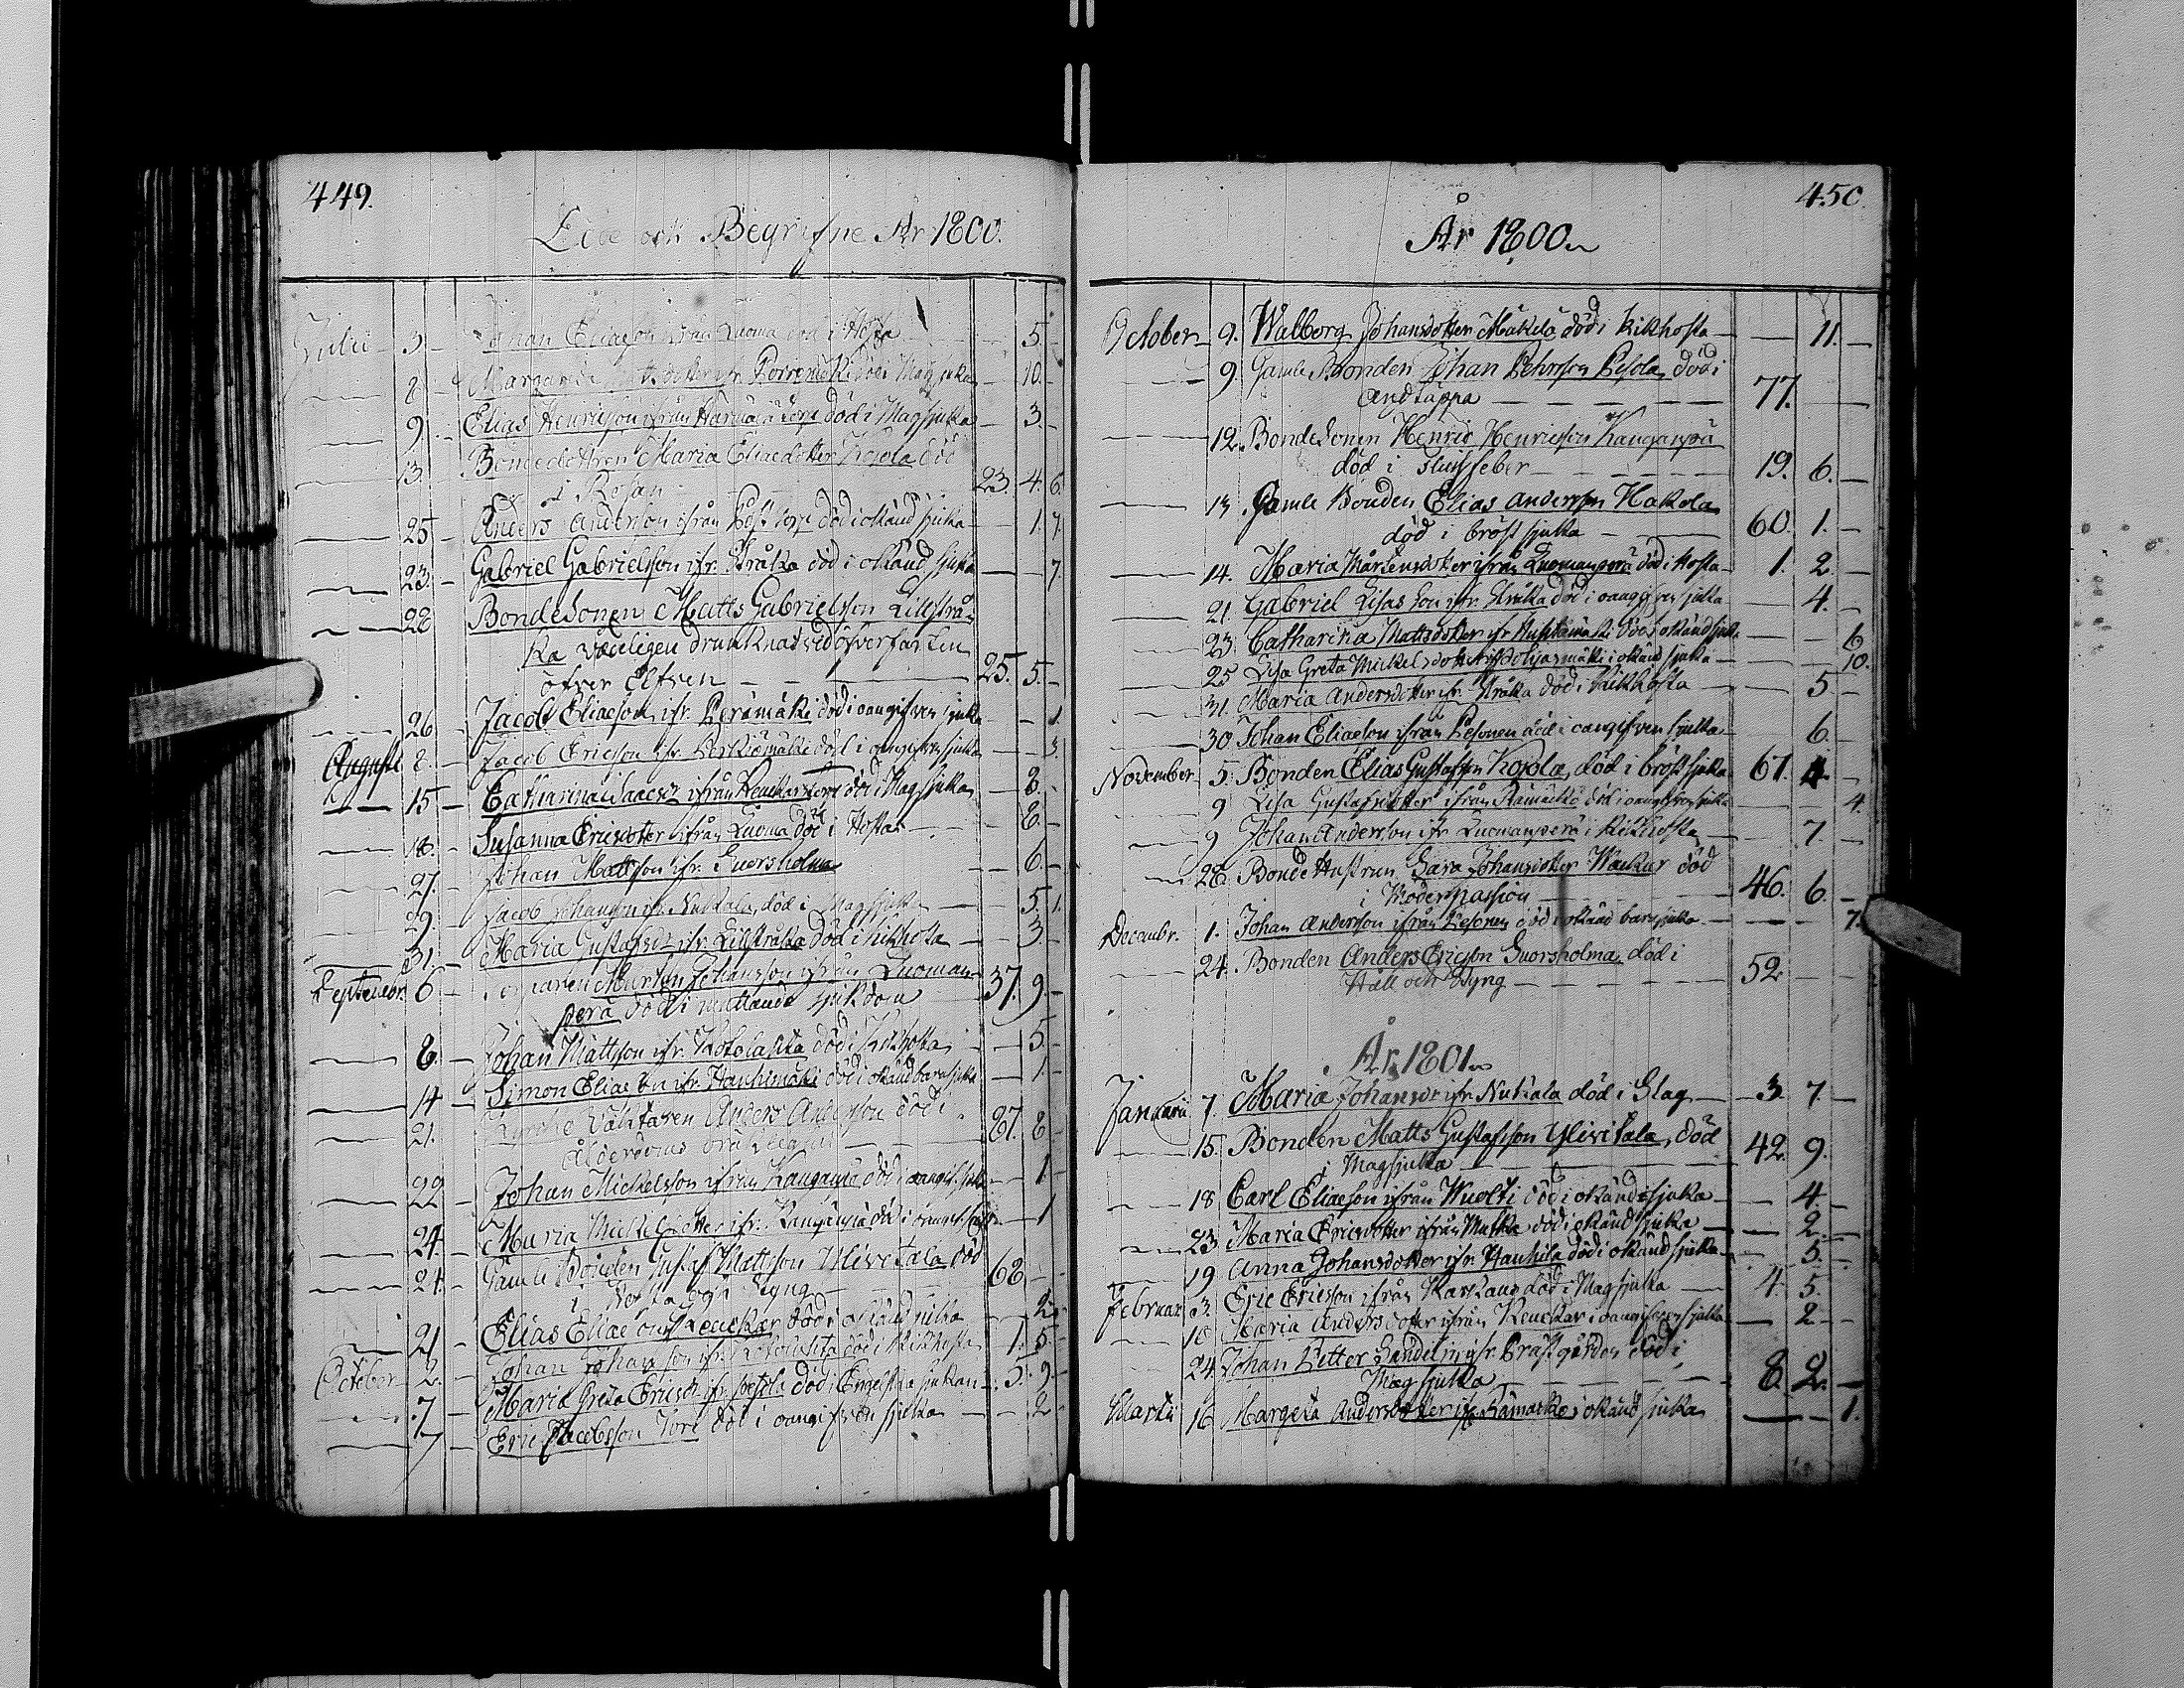 449.
Döde och Begrifne År 1800.
Julii 3. Johan Eliaeson ifrån Luoma död i Hosta 5.
8 Margareta Mattsdotter ifr. Porremäki död i Magsjuka 10.
9. Elias Henricsson ifrån Harmaa torp död i Magsjuka 3.
13. Bondedottren Maria Eliaedotter Kojola död
i Rosan 23. 4. 6
25 Anders Andersson ifrån torp död i okänd sjuka 1. 7.
23. Gabriel Gabrielsson ifr. Stråka död i okänd sjuka 7.
28 Bondesonen Matts Gabrielsson Lillstrå-
ka vådeligen drunknat vid öfverfarten
öfver Elfven 25. 5.
26 Jacob Eliaeson ifr. Perämäki död i oangifven sjuka 1.
Augusti 8. Jacob Ericsson ifr. död i oangifven sjuka 3.
15 Catharina Isaacsdr ifrån Keuckar torp död i Magsjuka 8.
18. Susanna Ericsdotter ifrån Luoma död i Hosta 8.
27. Johan Mattsson ifr. Suorsholma 6.
29. Jacob Johansson ifr. Nukala, död i Magsjuka 5. 1.
31. Maria Gustafsdr ifr. Lillstråka död i kikhosta 3.
September 6 Mårten Johansson ifrån Luoman-
perä död i sjukdom 37. 9.
8. Johan Mattsson ifr. död i Kikhosta 5
14 Simon Eliae son ifr. Hanhimäki död i okänd barnsjuka 1
21. Kyrcko Väktaren Anders Andersson död i
ålderdoms bräcklighet 87. 8
22 Johan Mickelsson ifrån Kangaspää död i oangif. sjuka 1
24. Maria Mickelsdotter ifr. Kangaspää död i oangif. sjuka 1
24. Gamle Bonden Gustaf Mattsson Ylivitala död
i Hosta och Styng 68
21 Elias Eliae son Keuckar död i okänd sjuka 2.
October 2. Johan Johansson ifr. död i Kikhosta 1. 5.
7 Maria Greta Ericsdr ifr. Pesola död i Engelska sjukan 5. 9.
7 Eric Jacobsson Tore död i oangifven sjuka 2
450.
År 1800.
October 9. Walborg Johansdotter Mäkelä död i kikhosta 11.
9. Gamle Bonden Johan Pehrsson Pesola, död i
andtäppa 77.
12. Bondesonen Henric Henricsson Kangaspää
död i feber 19. 6.
13. Gamle Bonden Elias Andersson Hakola
död i bröstsjuka 60. 1.
14. Maria Mårtensdotter ifrån Luomanperä död i Hosta 1. 2.
21. Gabriel Lisas son ifr. Stråka död i oangifven sjuka 4.
23. Catharina Mattsdotter ifr Huhtamäki död i okänd sjuka 6
25 Lisa Greta Mickelsdotter ifr i okänd sjuka 10.
31. Maria Andersdotter ifr. Stråka död i Kikhosta 5
30. Johan Eliaeson ifrån Pesonen död i oangifven sjuka 6.
November 5. Bonden Elias Gustafsson Kojola, död i bröstsjuka 67. 4.
9 Lisa Gustafsdotter ifrån Rämäckö död i oangifven sjuka 4.
9 Johan Andersson ifr Luomanperä i kikhosta 7.
28. Bonde Hustrun Sara Johansdotter Waukur död
i Moderpassion 46. 6.
Decembr. 1. Johan Andersson ifrån Pesonen död i okänd barnsjuka 7.
24. Bonden Anders Ericsson Suorsholma, död i
Håll och Styng 52
År 1801.
Januarii 7. Maria Johansdr ifr. Nukala död i Slag 3. 7.
15. Bonden Matts Gustafsson Ylivitala, död
i Magsjuka 42. 9.
18 Carl Eliaeson ifrån Wuolti död i okänd sjuka 4.
23 Maria Ericsdotter ifrån Matka död i okänd sjuka 2.
19 Anna Johansdotter ifr. Hauhila död i okänd sjuka 5.
Februar. 3. Eric Ericsson ifrån Karkaus död i Magsjuka 4. 5.
18 Maria Andersdotter ifrån Keuckar i oangifven sjuka 2
24. Johan Petter Sandelin ifr. Prästgården död i
Magsjuka 8. 2.
Martii 16. Margeta Andersdotter ifr. Rämäckö i okänd sjuka 1.